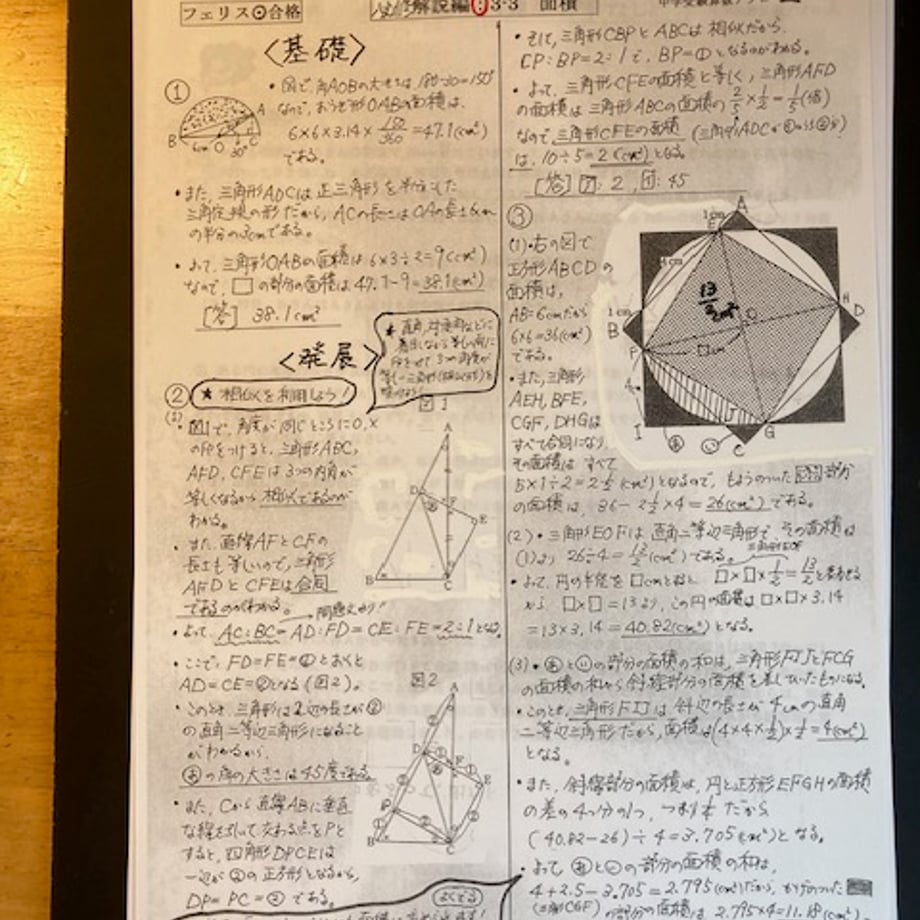 フェリス合格
解説編 3-3 面積
<基礎>
①
・図で、角AOBの大きさは、180-30=150°
なので、おうぎ形OABの面積は、
6×6×3.14×150/360=47.1(cm²)
である。
A
B
6cm
O
30°
C
・また、三角形AOCは正三角形を半分にした
三角定規の形だから、ACの長さはOAの長さ6cm
の半分の3cmである。
・よって、三角形OABの面積は、6×3÷2=9(cm²)
なので、□の部分の面積は、47.1-9=38.1(cm²)
[答] 38.1cm²
<発展>
②
★ 相似を利用しよう!
(1)
・図1で、角度が同じところに○、×
の印をつけると、三角形ABC、
AFD、CFEは3つの内角が
等しくなるから相似であるのが
わかる。
図1
A
D
F
E
B
C
・また、直線AFとCFの
長さも等しいので、三角形
AFDとCFEは合同
であるのがわかる。
問題文より!
・よって、AC:BC=AD:FD=CE:FE=2:1となる。
・ここで、FD=FE=①とおくと
AD=CE=②となる(図2)。
図2
・このとき、三角形は2辺の長さが②
の直角二等辺三角形になること
がわかるから、
あの角の大きさは45度である。
・また、Cから直線ABに垂直
な線を引いて交わる点をPと
すると、四角形DPCEは
一辺が②の正方形となるから、
DP=PC=②である。
・そして、三角形CBPとABCは相似だから、
CP:BP=2:1で、BP=①となるのがわかる。
・よって、三角形CFEの面積と等しく、三角形AFD
の面積は三角形ABCの面積の2/5×1/2=1/5(倍)
なので、三角形CFEの面積
は、10÷5=2(cm²)となる。
[答] ア:2、イ:45
③
(1)・右の図で
正方形ABCDの
面積は、
AB=6cmだから
6×6=36(cm²)
である。
・また、三角形
AEH、BFE、
CGF、DHGは
すべて合同になり、
その面積はすべて
5×1÷2=2½(cm²)となるので、もようのついた部分
の面積は、36-2½×4=26(cm²)である。
A
1cm
E
H
D
1cm
B
13/2cm²
O
□cm
F
I
J
G
C
あ
い
(2)・三角形EOFは直角二等辺三角形で、その面積は
(1)より 26÷4=13/2(cm²)である。
・よって、円の半径を□cmとおくと □×□×1/2=13/2と表せる
から、□×□=13より、この円の面積は□×□×3.14
=13×3.14=40.82(cm²)となる。
(3)・あといの部分の面積の和は、三角形FIJとFCG
の面積の和から斜線部分の面積を差しひいたものになる。
・このとき、三角形FIJは斜辺の長さが4cmの直角
二等辺三角形だから、面積は(4×4×½)×½=4(cm²)
となる。
・また、斜線部分の面積は、円と正方形EFGHの面積
の差の4つ分の1つ、つまり¼だから
(40.82-26)÷4=3.705(cm²)となる。
・よって、あといの部分の面積の和は、
4+2.5-3.705=2.795(cm²)だから、かげのついた
(三角形CGF)
の部分の面積は、2.795×4=11.18(cm²)